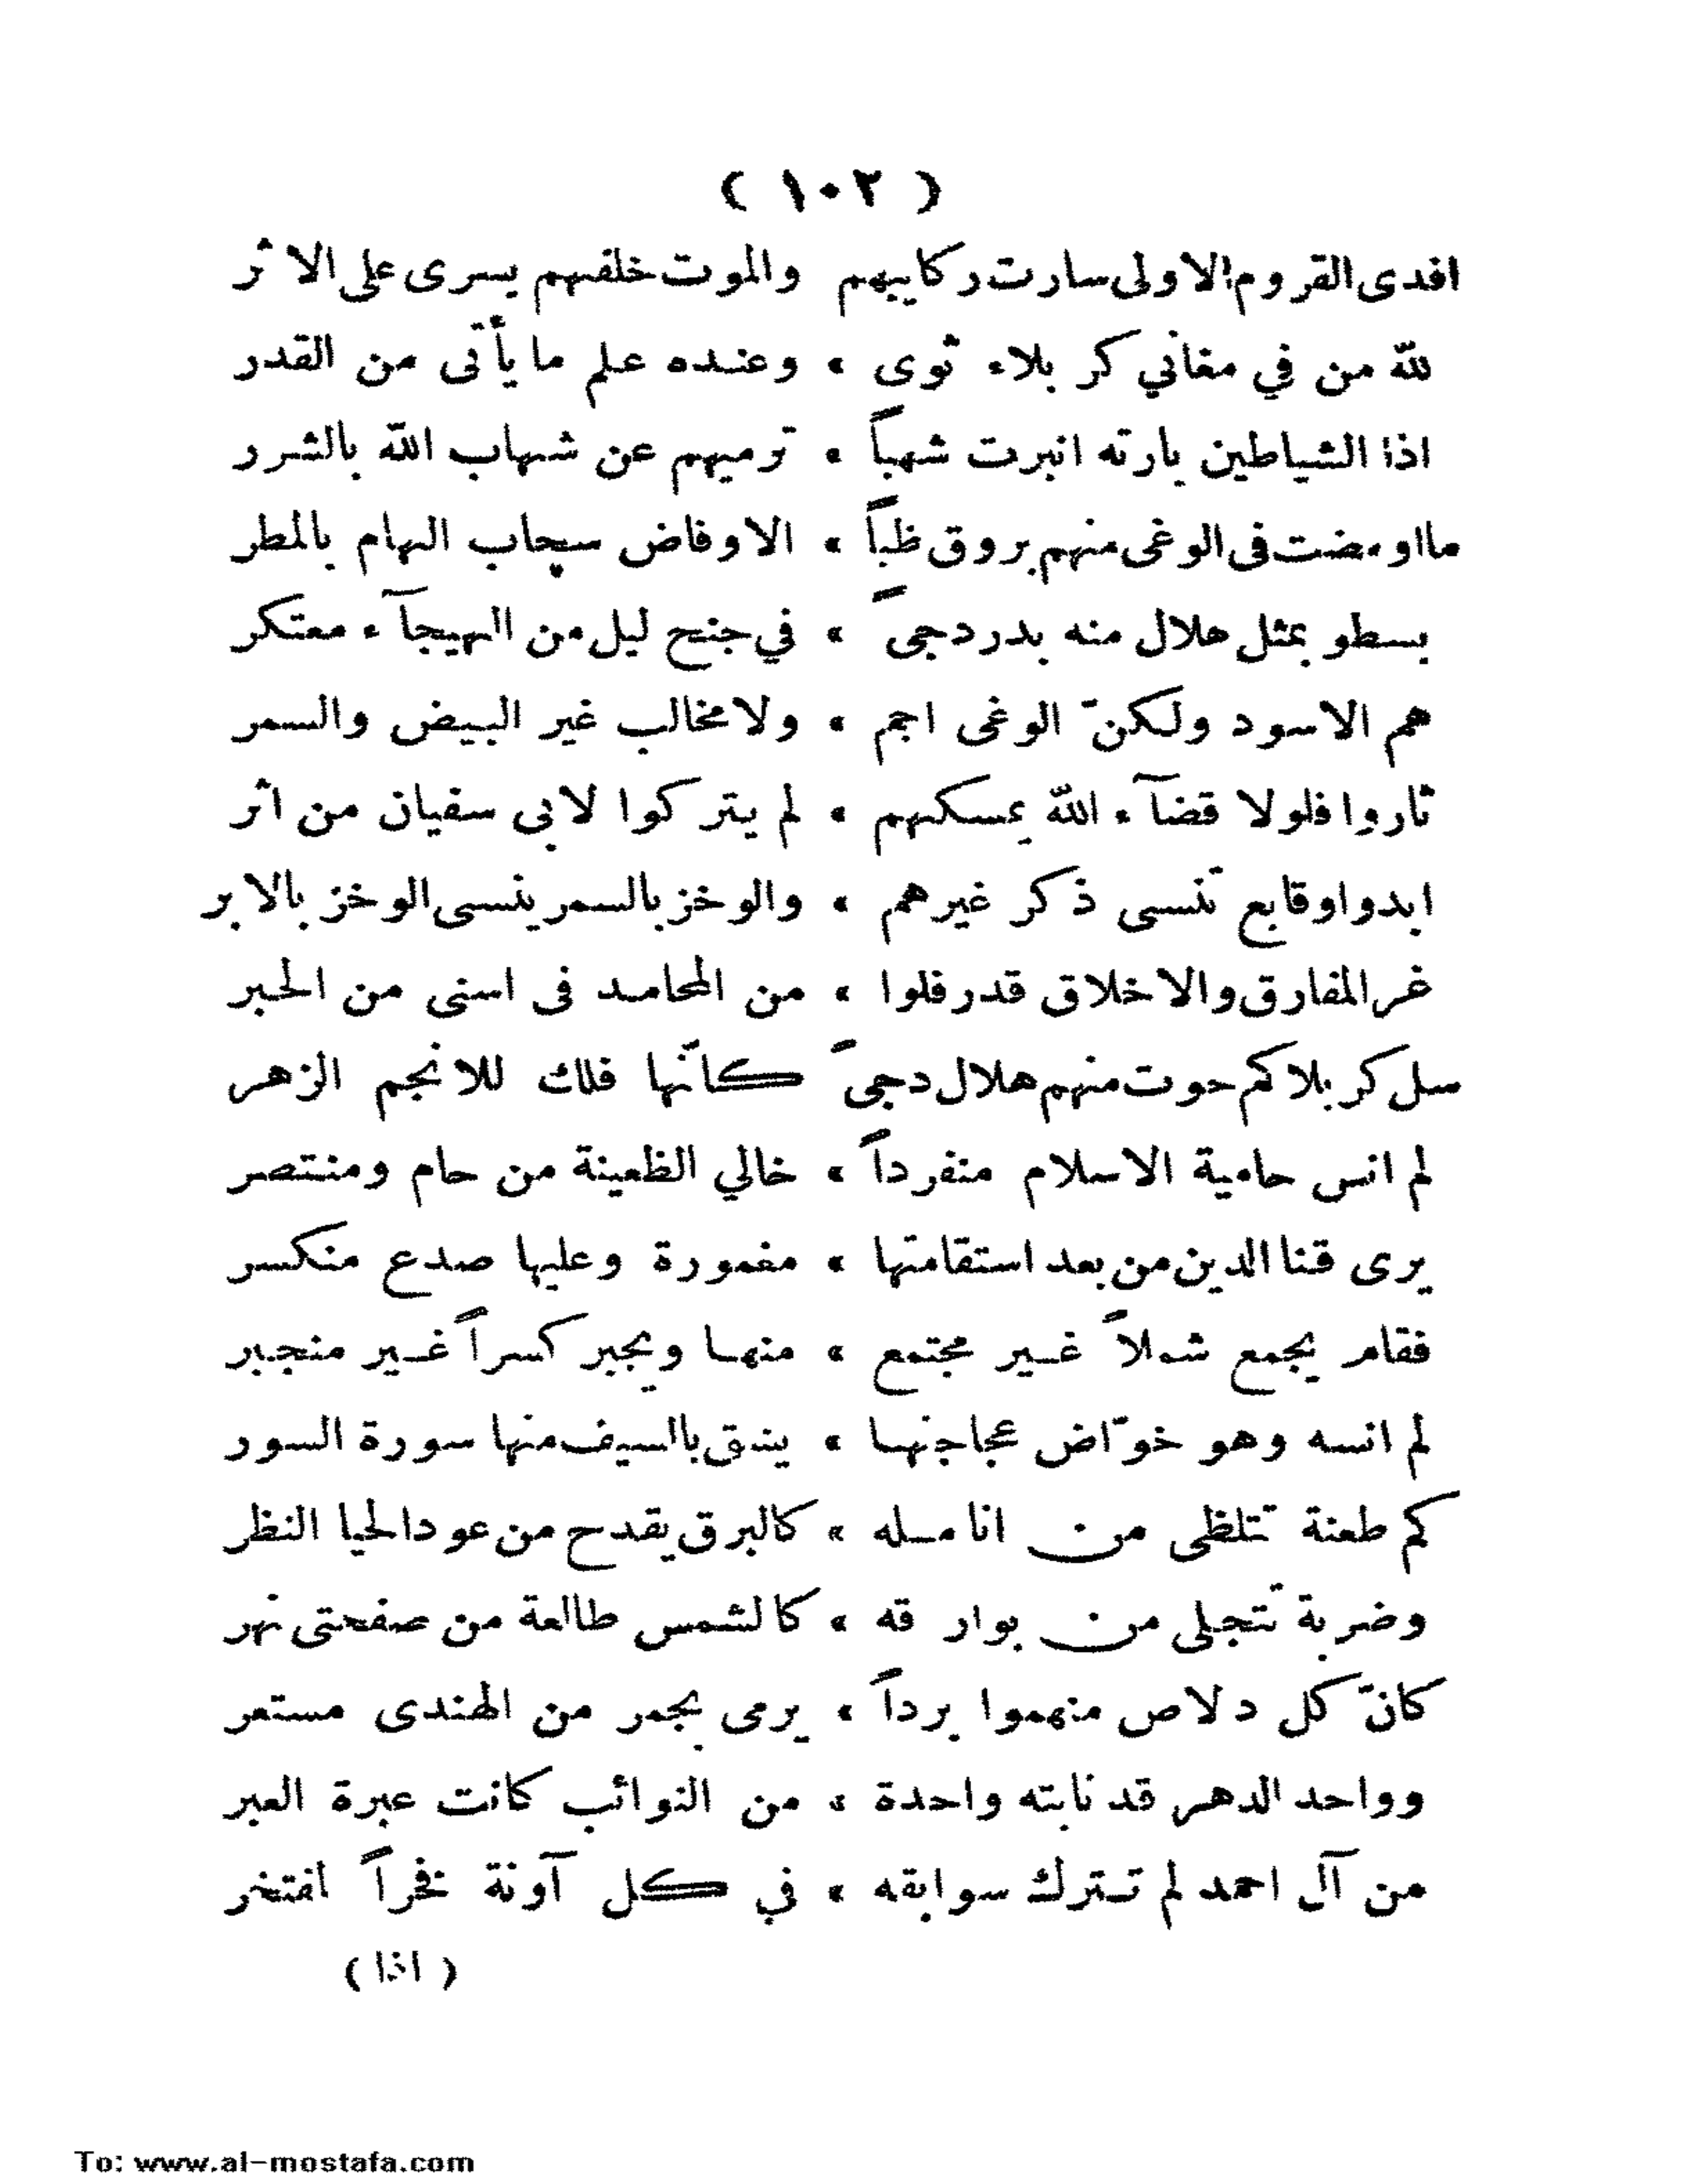 ( ١٠٢ )
افدى القروم الاولى سارت ركايبهم والموت خلفهم يسرى على الاثر
للّه من في مغاني كربلاء ثوى » وعنده علم ما يأتى من القدر
اذا الشياطين بارته انبرت شهباً » ترميهم عن شهاب اللّه بالشرر
ما اومضت فى الوغى منهم بروق ظباً » الا وفاض سحاب الهام بالمطر
يسطو بمثل هلال منه بدر دجىً » في جنح ليل من الهيجآء معتكر
هم الاسود ولكنّ الوغى اجم » ولا مخالب غير البيض والسمر
ثاروا فلولا قضآء اللّه يمسكهم » لم يتركوا لابى سفيان من اثر
ابدوا وقايع تنسى ذكر غيرهم » والوخز بالسمر ينسى الوخز بالابر
غر المفارق والاخلاق قد رفلوا » من المحامد فى اسنى من الحبر
سل كربلا كم حوت منهم هلال دجىً كانّها فلك للانجم الزهر
لم انس حامية الاسلام منفرداً » خالي الظعينة من حام ومنتصر
يرى قنا الدين من بعد استقامتها » مغمورة وعليها صدع منكسر
فقام يجمع شملاً غير مجتمع » منها ويجبر كسراً غير منجبر
لم انسه وهو خوّاض عجاجتها » يشق بالسيف منها سورة السور
كم طعنة تتلظى من انامله » كالبرق يقدح من عود الحيا النظر
وضربة تتجلى من بوارقه » كالشمس طالعة من صفحتى نهر
كانّ كل دلاص منهموا برداً » يرمى بجمر من الهندى مستعر
وواحد الدهر قد نابته واحدة » من النوائب كانت عبرة العبر
من آل احمد لم تترك سوابقه » في كل آونة فخراً لمفتخر
( اذا )
To: www.al-mostafa.com